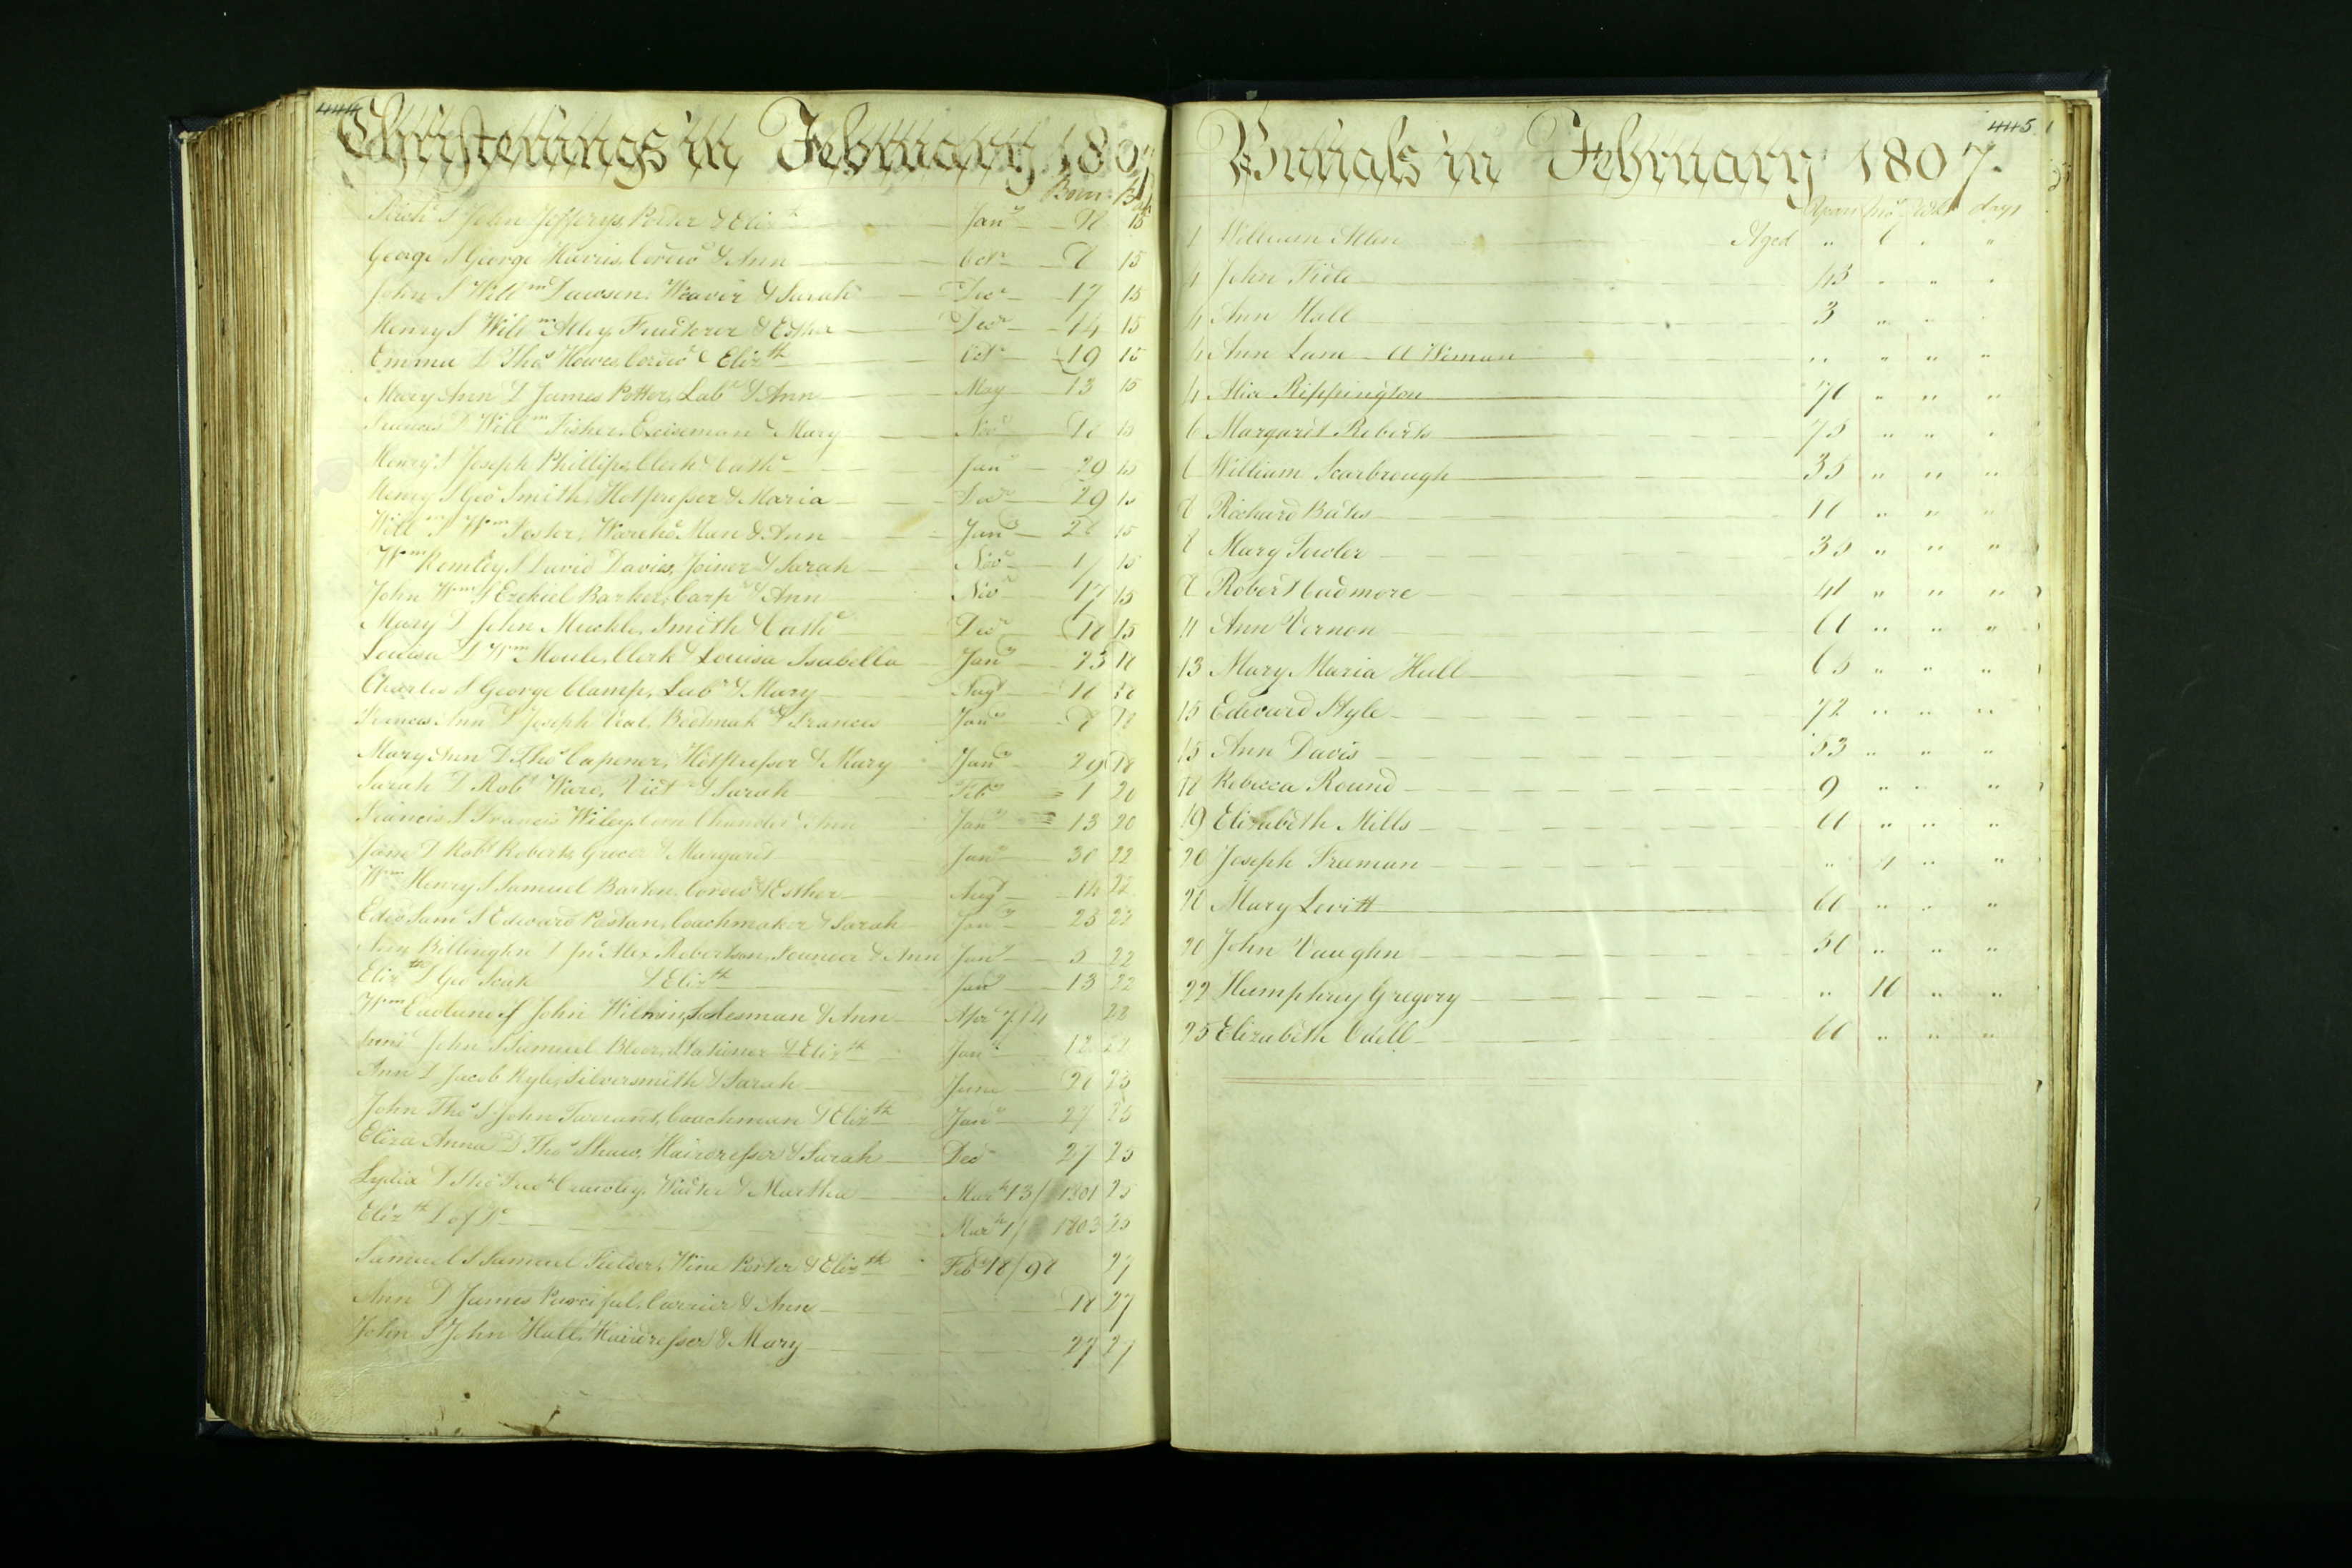 444
Christenings in February 1807
Born Bap
John Jefferys, Porter & Eliz.th Jan.y 15
George S George Harris, Cordw.r & Ann Oct.r 8 15
John S Will.m Dawson, Weaver & Sarah Dec.r 17 15
Henry S Will.m Alley, Fruiterer & Esther Dec.r 14 15
Emma D Tho.s Howes, Cordw.r & Eliz.th Oct.r 19 15
Mary Ann D James Potter, Lab.r & Ann May 13 15
Frances D Will.m Fisher, Exciseman & Mary Nov.r 15
Henry S Joseph Phillips, Clerk & Cath.e Jan.y 29 15
Henry S Geo. Smith, Hotpresser & Maria Dec.r 29 15
Will.m S W.m Foster, Wareho. Man & Ann Jan.y 28 15
W.m Romley S David Davies, Joiner & Sarah Nov.r 15
John W.m S Ezekiel Barker, Carp.r & Ann Nov.r 17 15
Mary D John Muckle, Smith & Cath.e Dec.r 18 15
Louisa D W.m Moule, Clerk & Louisa Isabella Jan.y 23 18
Charles S George Clamp, Lab.r & Mary Aug.t 18 18
Frances Ann D Joseph Veal, Bedmak.r & Frances Jan.y 8 18
Mary Ann D Tho.s Capener, Hotpresser & Mary Jan.y 29 18
Sarah D Rob.t Ward, Vict.r & Sarah Feb.y 1 20
Francis S Francis Wiley, Corn Chandler & Ann Jan.y 13 20
Jane D Rob.t Roberts, Grocer & Margaret Jan.y 30 22
W.m Henry S Samuel Barton, Cordw.r & Esther Aug.t 14 22
Edw.d Sam.l S Edward Postan, Coachmaker & Sarah Jan.y 23 22
Billinghn D Jn.o Alex. Robertson, Founder & Ann Jan.y 5 22
Eliz.th D Geo. & Eliz.th Jan.y 13 22
W.m S John Salesman & Ann Apr. 22
John S Samuel Stationer & Eliz.th Jan.y 12 22
Ann D Jacob Kyle, Silversmith & Sarah June 28 25
John Tho.s S John Tarrant, Coachman & Eliz.th Jan.y 27 25
Eliza Anna D Tho.s Shaw, Hairdresser & Sarah Dec.r 27 25
Lydia D Tho.s Crawley, Waiter & Martha Mar.h 13/1801 25
Eliz.th D of D.o Mar.h 1/1803 25
Samuel S Samuel Fielder, Wine Porter & Eliz.th Feb.y 18/98 27
Ann D James Purcifal, Carrier & Ann 18 27
John S John Hall, Hairdresser & Mary 27 27
445
Burials in February 1807.
Years Mo.s Wks days
1 William Allen Aged " " "
4 John 43 " " "
4 Ann Hall 3 " " "
4 Ann Lane A Woman " " " "
4 Alice Rippington 70 " " "
6 Margaret Roberts 75 " " "
6 William Scarbrough 35 " " "
8 Richard Bates 18 " " "
8 Mary 35 " " "
8 Robert Cudmore 41 " " "
11 Ann Vernon 61 " " "
13 Mary Maria Hull 65 " " "
15 Edward Style 72 " " "
15 Ann Davis 53 " " "
18 Rebecca Round 9 " " "
19 Elizabeth Mills 61 " " "
20 Joseph Freeman " " "
20 Mary Levitt 60 " " "
20 John Vaughn 50 " " "
22 Humphrey Gregory " 18 " "
25 Elizabeth Odell 60 " " "